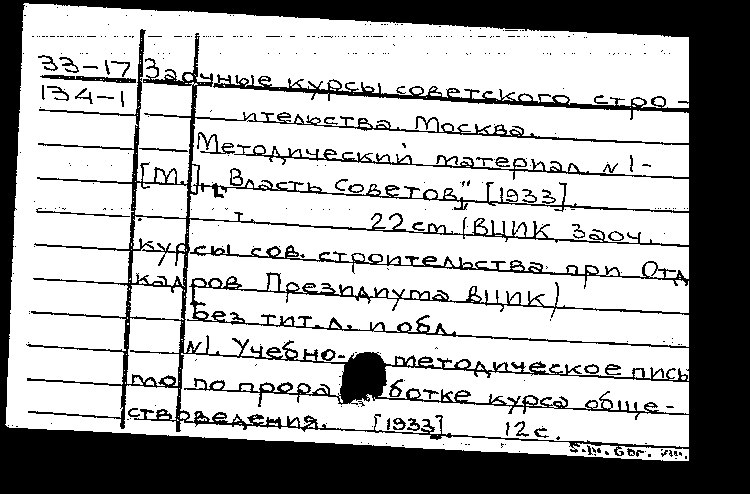 33-17 Заочные курсы советского стро-
134-1 ительства. Москва.
Методический материал. №1-
[М.], "Власть Советов", [1933].
т. 22 cm. (ВЦИК. Заоч.
курсы сов. строительства при Отд
кадров Президиума ВЦИК).
Без тит. л. и обл.
№1. Учебно-методическое пись
мо по прора ботке курса обще-
ствоведения. [1933]. 12 с.